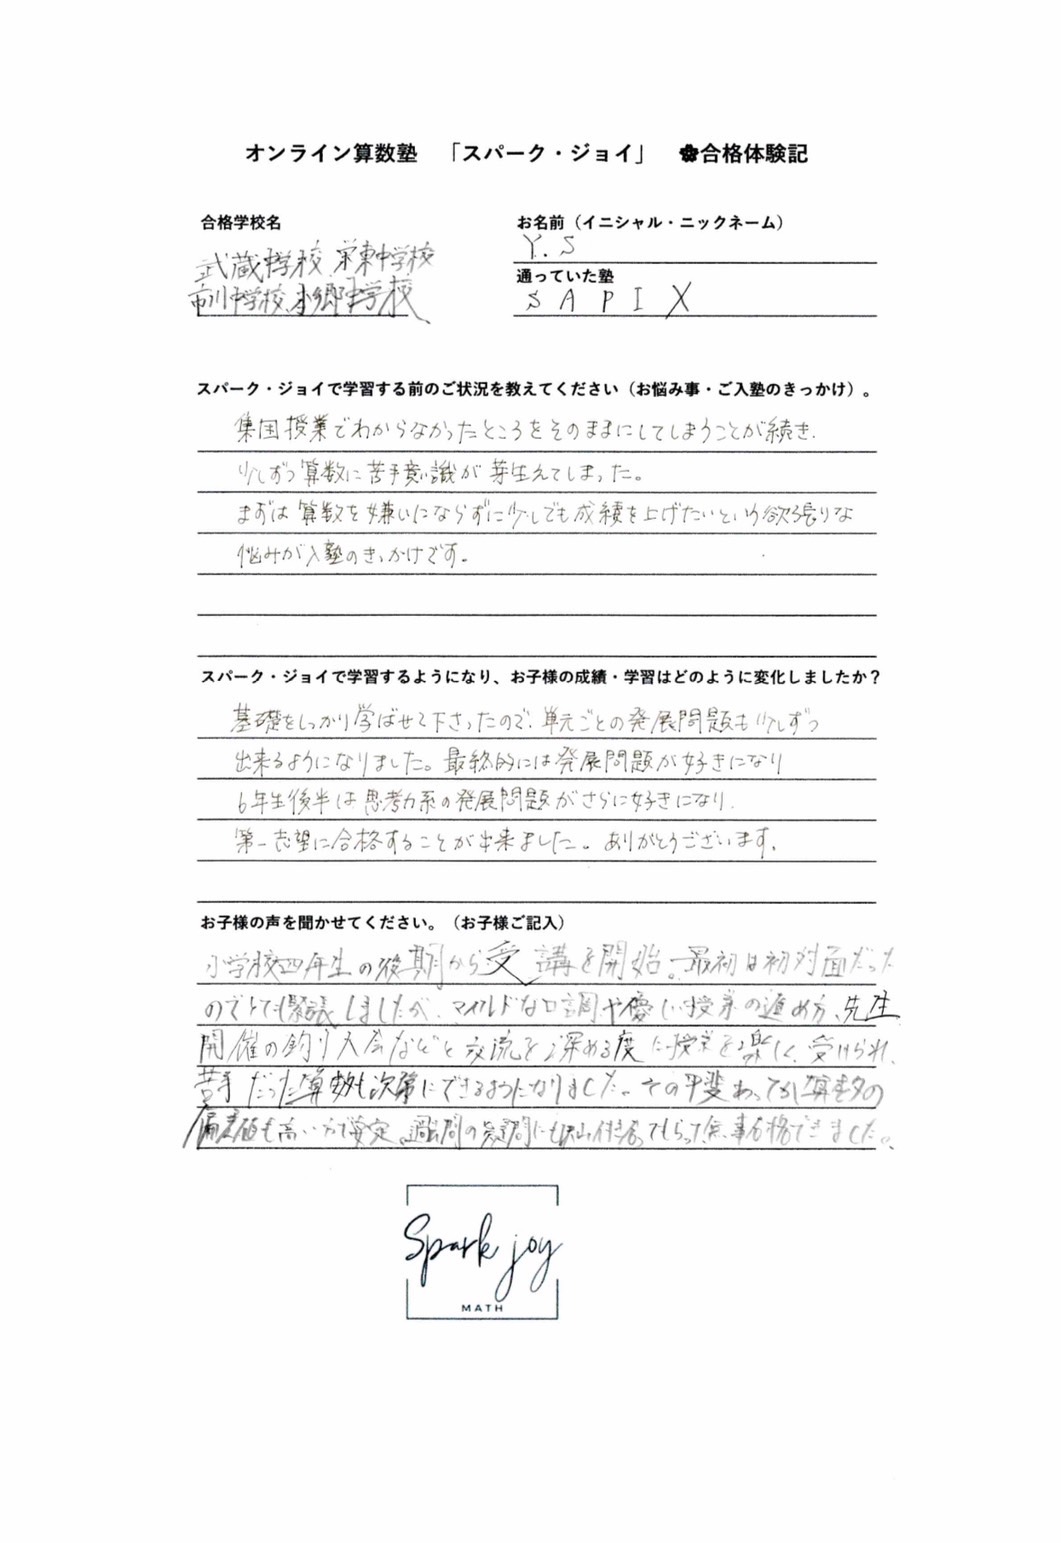 オンライン算数塾 「スパーク・ジョイ」 ✿合格体験記
合格学校名
武蔵中学校 栄東中学校
市川中学校、本郷中学校
お名前（イニシャル・ニックネーム）
Y.S
通っていた塾
SAPIX
スパーク・ジョイで学習する前のご状況を教えてください（お悩み事・ご入塾のきっかけ）。
集団授業でわからなかったところをそのままにしてしまうことが続き、
少しずつ算数に苦手意識が芽生えてしまった。
まずは算数を嫌いにならずに少しでも成績を上げたいという欲張りな
悩みが入塾のきっかけです。
スパーク・ジョイで学習するようになり、お子様の成績・学習はどのように変化しましたか？
基礎をしっかり学ばせて下さったので、単元ごとの発展問題も少しずつ
出来るようになりました。最終的には発展問題が好きになり
6年生後半は思考力系の発展問題がさらに好きになり、
第一志望に合格することが出来ました。ありがとうございます。
お子様の声を聞かせてください。（お子様ご記入）
小学校四年生の後期から受講を開始。最初は初対面だった
のでとても緊張しましたが、マイルドな口調や優しい授業の進め方、先生
開催の釣り大会などと交流を深める度に授業を楽しく受けられ、
苦手だった算数も次第にできるようになりました。その甲斐あってか算数の
偏差値も高い方で安定、過去問の質問にも沢山付き合ってもらって無事合格できました。
Spark joy
MATH